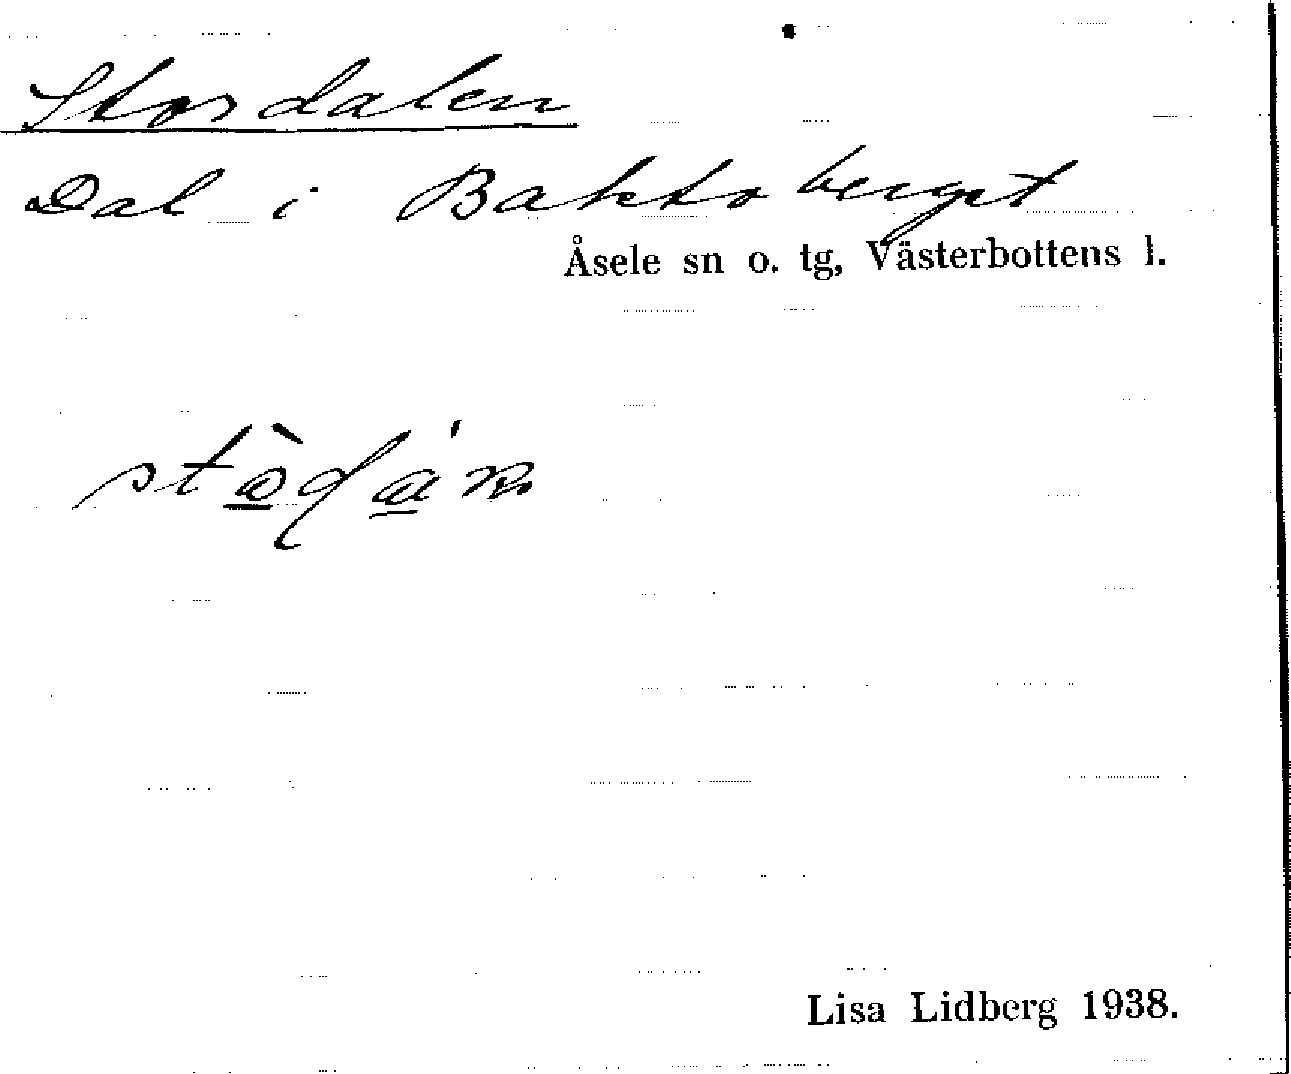 Stordalen
Dal i Baktsberget
Åsele sn o. tg, Västerbottens l.
Lisa Lidberg 1938.